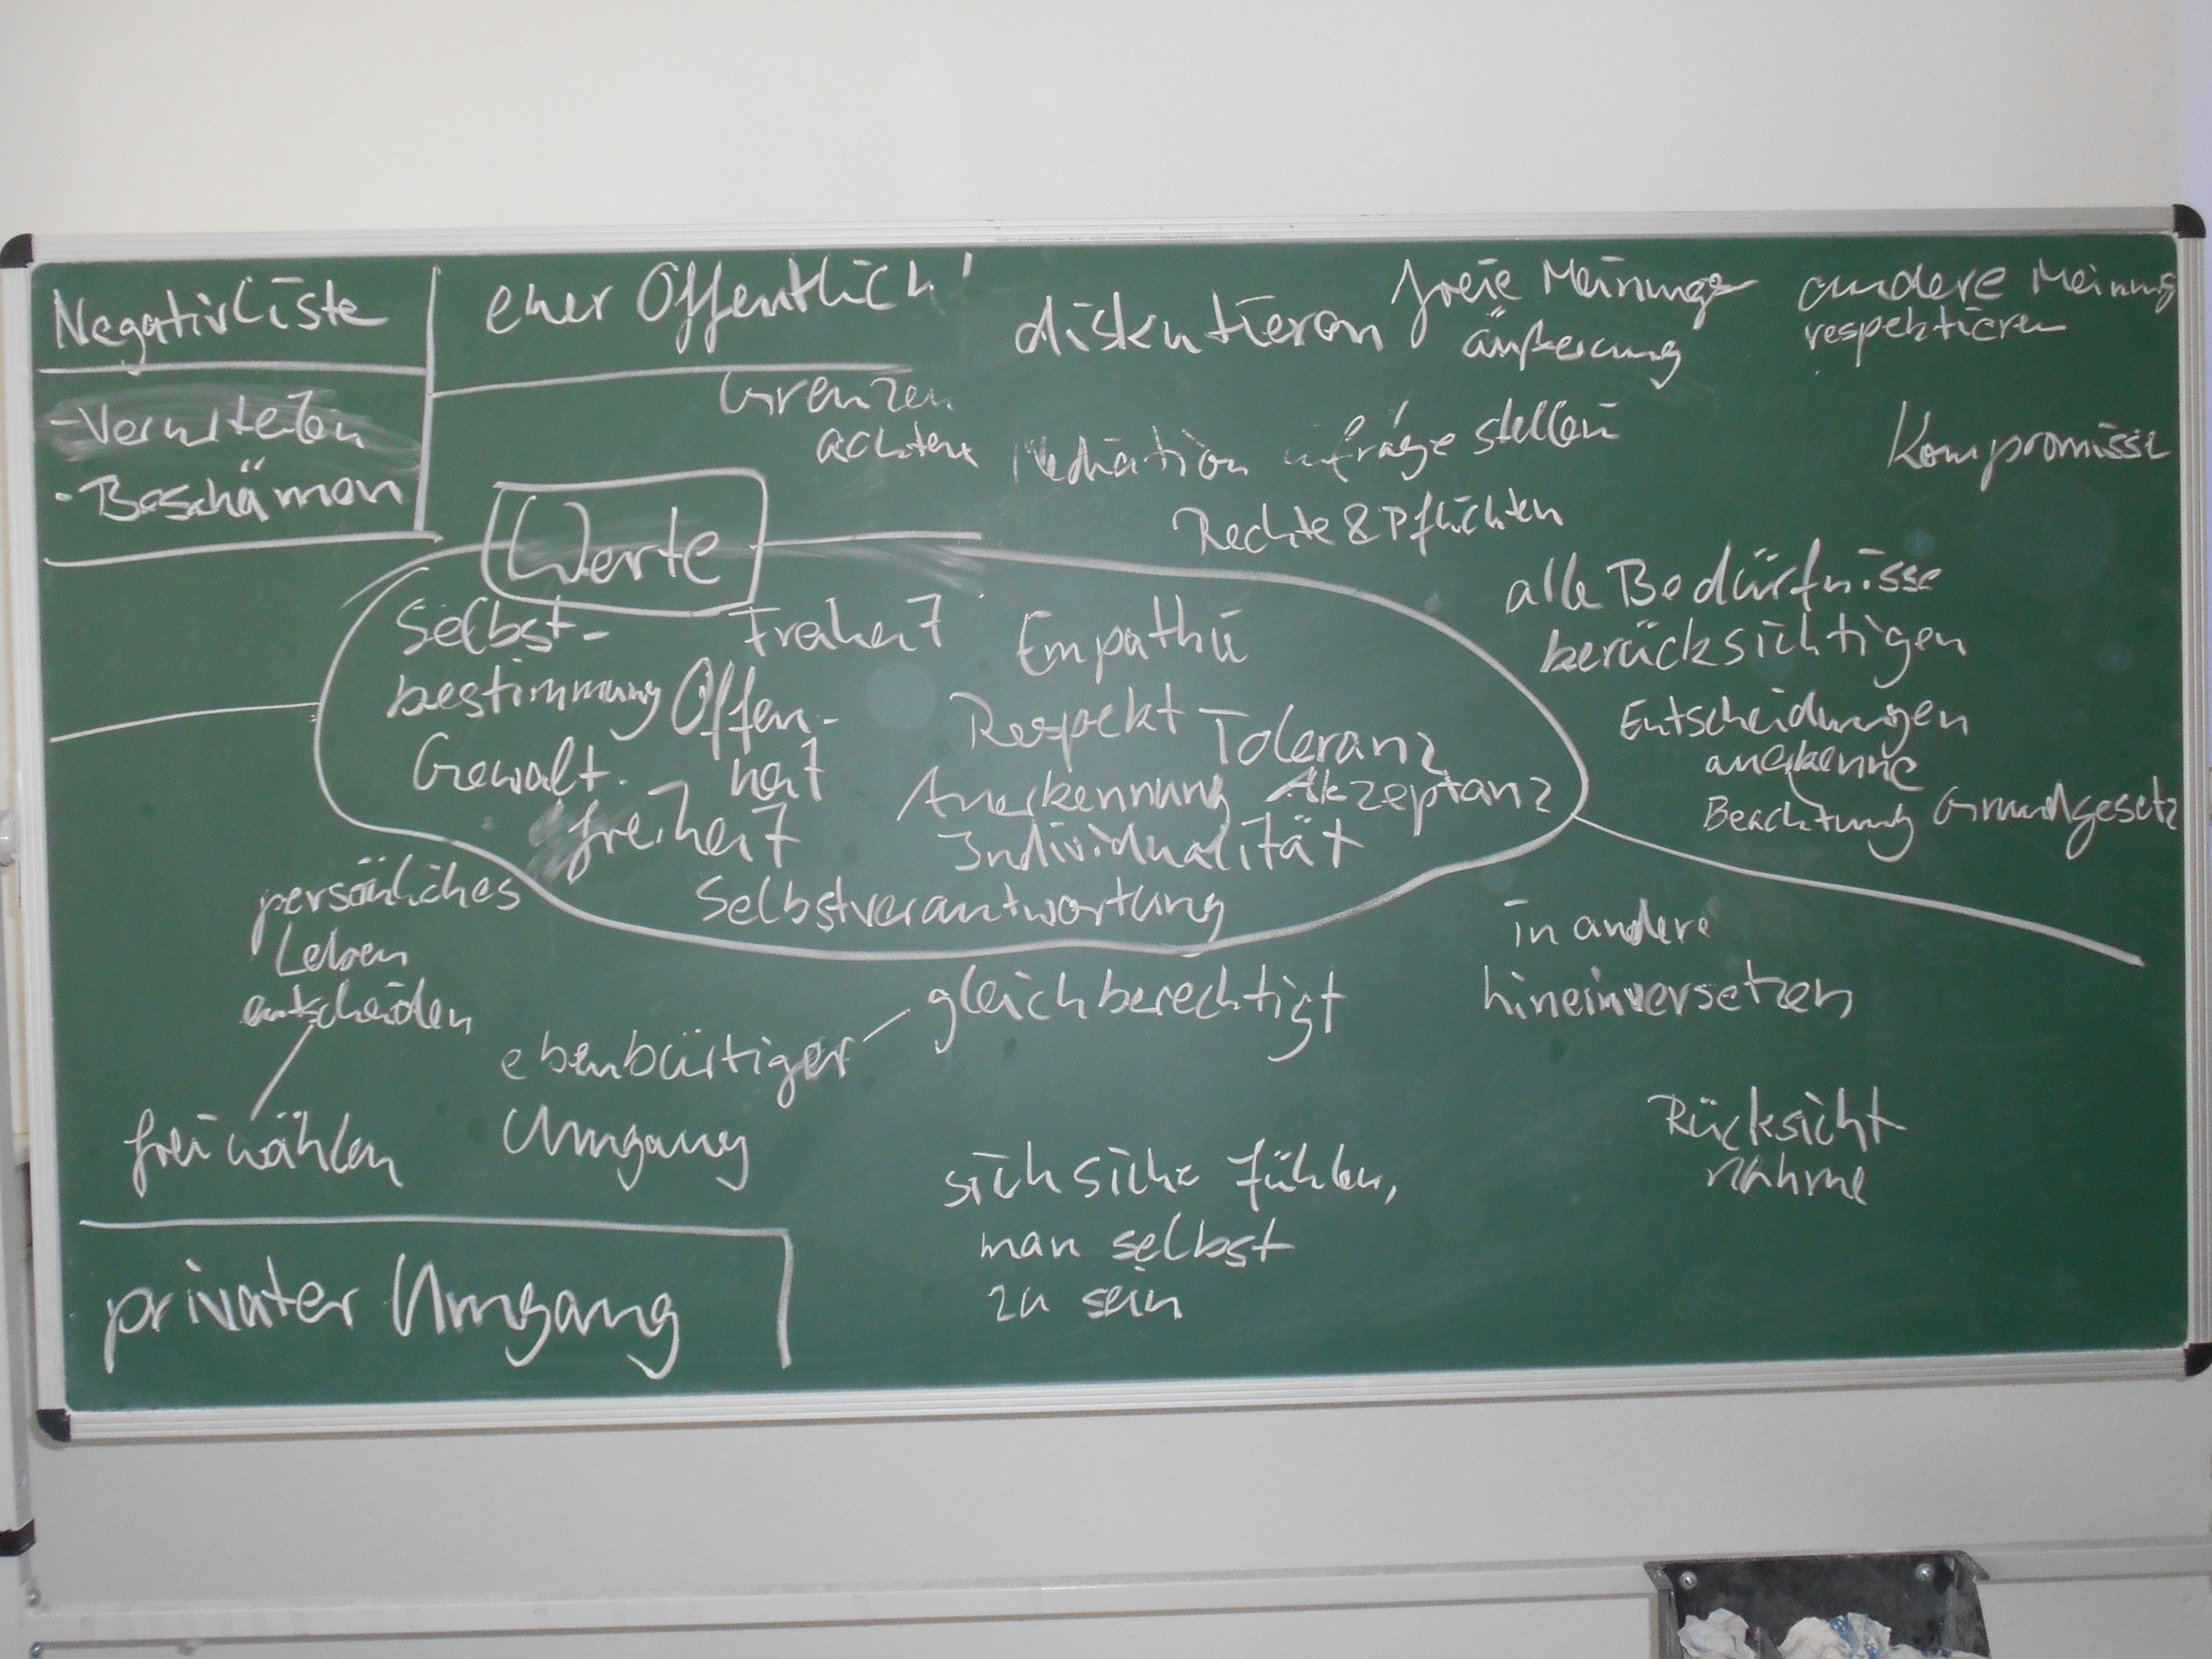 Negativliste
- Verurteilen
- Beschämen
eher Öffentlich!
Grenzen
achten
diskutieren
freie Meinungs
äußerung
andere Meinung
respektieren
Mediation
infrage stellen
Kompromisse
Rechte & Pflichten
alle Bedürfnisse
berücksichtigen
Entscheidungen
anerkenne
Beachtung Grundgesetz
Werte
Selbst-
bestimmung
Freiheit
Empathie
Offen-
heit
Respekt
Toleranz
Gewalt-
freiheit
Anerkennung
Akzeptanz
Individualität
Selbstverantwortung
persönliches
Leben
entscheiden
frei wählen
ebenbürtiger
Umgang
gleichberechtigt
in andere
hineinversetzen
sich sicher fühlen,
man selbst
zu sein
Rücksicht
nahme
privater Umgang